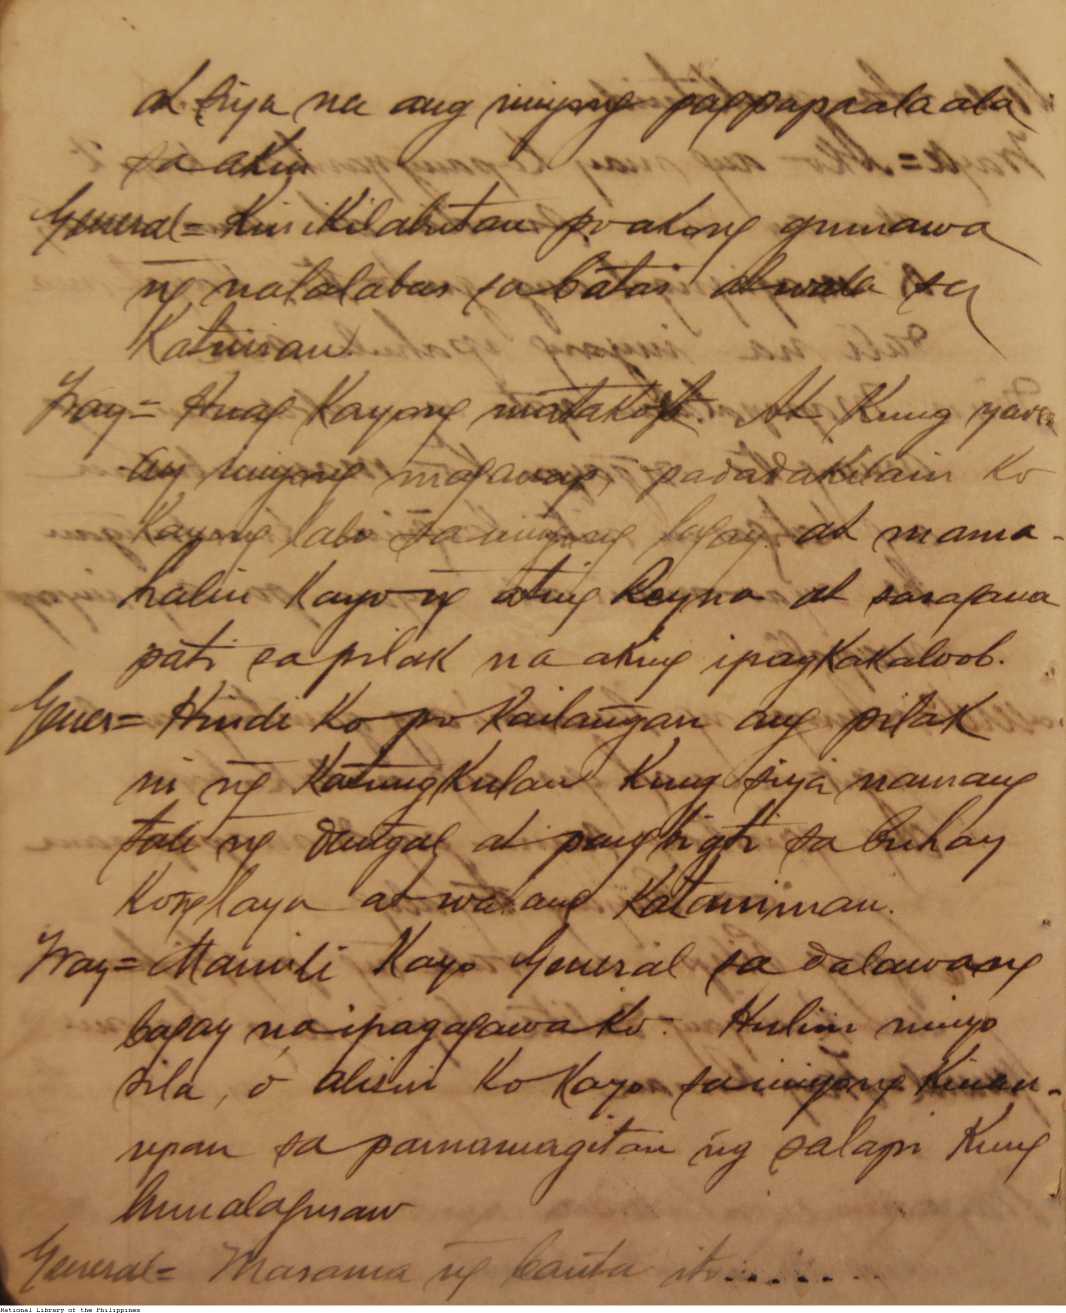 at siya na ang ninyong pagpapaalaala
sa akin
General = Kinikilabutan po akong gumawa
ng natalabas sa batas at wala sa
Katuiran.
Fray = Huag Kayong matakot. At Kung yare
ay ninyong magawap, padadakilain ko
Kayong labi sa inyong lagay at mama-
halin Kayo ng ating Reyna at sasagana
pati sa pilak na aking ipagkakaloob.
Gener = Hindi Ko po Kailangan ang pilak
ni ng Katungkulan Kung siya namang
tali ng dangal at pangbigti sa buhay
Kong laya at walang Katamiman.
Fray = Mamili Kayo General sa dalawang
bagay na ipagagawa Ko. Hulim ninyo
sila, o alisin Ko Kayo sa inyong Kinau-
upan sa pamamagitan ng salapi Kung
bumalagusaw
General = Masama ng banta ito........
National Library of the Philippines